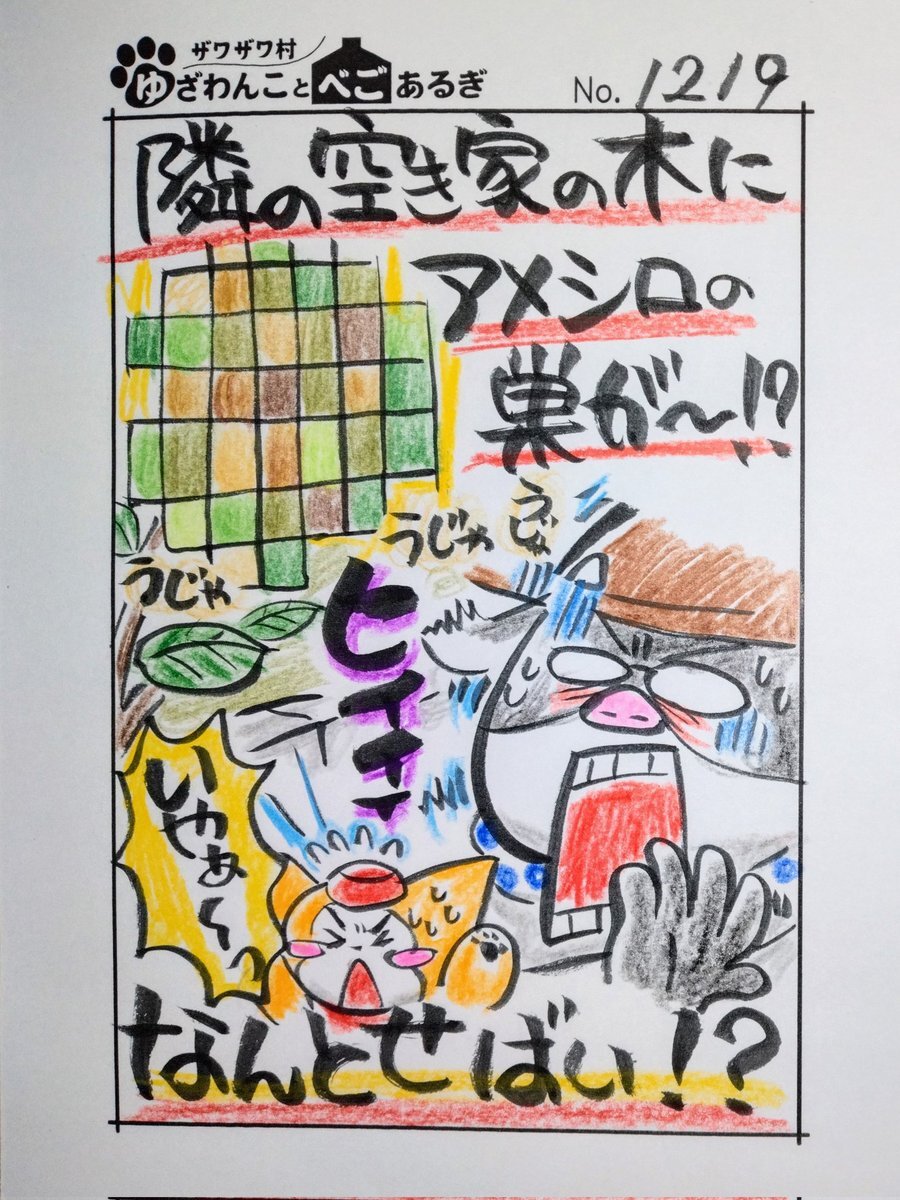 ザワザワ村
ゆざわんことべごあるぎ
No. 1219
隣の空き家の木に
アメシロの
巣が〜!?
うじゃ
うじゃ
うじゃ
ヒイイー
いやぁ〜
なんとせばい!?